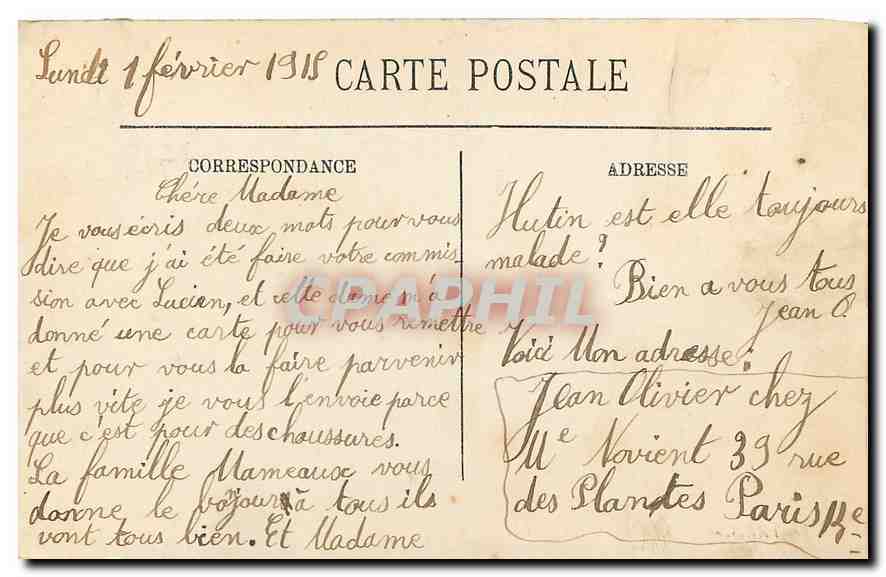 Lundi 1 février 1915
CARTE POSTALE
CORRESPONDANCE
Chére Madame
Je vous écris deux mots pour vous
dire que j'ai été faire votre commis-
sion avec Lucien, et cette dame m'a
donné une carte pour vous remettre
et pour vous la faire parvenir
plus vite je vous l'envoie parce
que c'est pour des chaussures.
La famille Mameaux vous
donne le bonjour à tous ils
vont tous bien. Et Madame
ADRESSE
Hutin est elle toujours
malade?
Bien a vous tous
Jean O.
Voici Mon adresse:
Jean Olivier chez
Me Novient 39 rue
des Plantes Paris
CPAPHIL